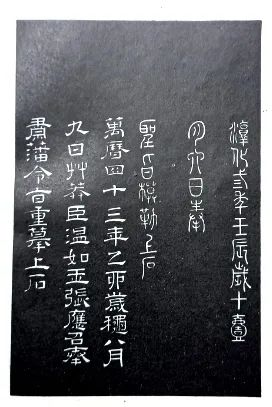 淳化三年壬辰歲十一
月六日奉
聖旨摸勒上石
萬曆四十三年乙卯歲穐八月
九日艸莽臣温如玉張應召奉
肅藩令旨重摹上石